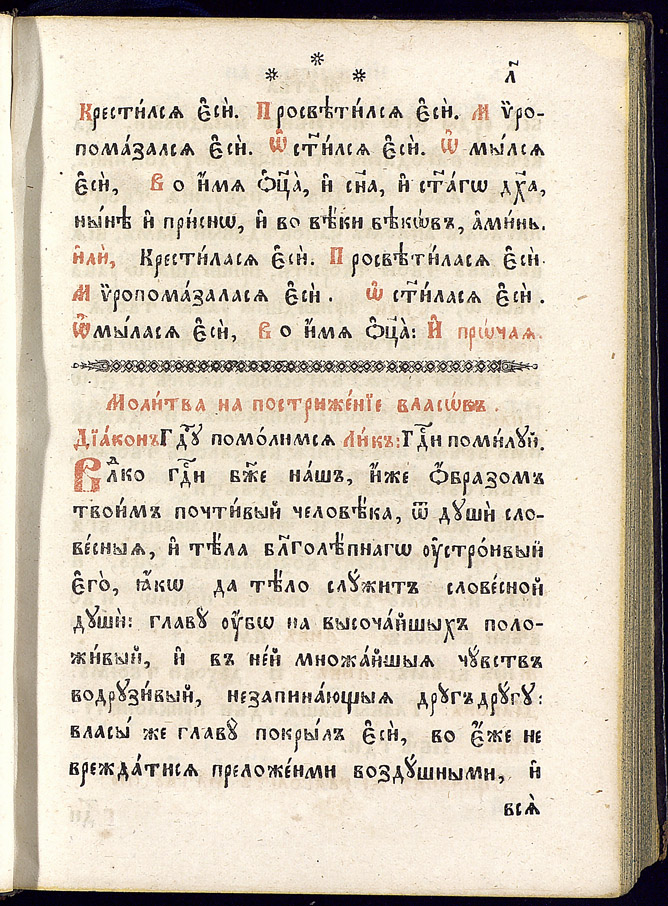 л҃
Крести́лсѧ є҆сѝ. Просвѣти́лсѧ є҆сѝ. Мѵ̈ро-
пома́залсѧ є҆сѝ. Ѡ҆ст҃и́лсѧ є҆сѝ. Ѿмы́лсѧ
є҆сѝ, Во и҆́мѧ ѻ҆ц҃а̀, и҆ сн҃а, и҆ ст҃а́гѡ дх҃а,
ны́нѣ и҆ при́снѡ, и҆ во вѣ́ки вѣкѡ́въ, а҆ми́нь.
И҆лѝ, Крести́ласѧ є҆сѝ. Просвѣти́ласѧ є҆сѝ.
Мѵ̈ропома́заласѧ є҆сѝ. Ѡ҆ст҃и́ласѧ є҆сѝ.
Ѿмы́ласѧ є҆сѝ, Во и҆́мѧ ѻ҆ц҃а̀: И҆ прѡ́чаѧ.
Моли́тва на постриже́нїе власѡ́въ.
Дїа́конъ Гдⷭ҇ꙋ помо́лимсѧ Ли́къ: Гдⷭ҇и поми́лꙋй.
Влⷣко гдⷭ҇и бж҃е на́шъ, и҆́же ѻ҆́бразомъ
твои́мъ почти́вый человѣ́ка, ѿ дꙋшѝ сло-
ве́сныѧ, и҆ тѣ́ла бл҃голѣ́пнагѡ ᲂу҆стро́ивый
є҆го̀, ꙗ҆́кѡ да тѣ́ло слꙋ́житъ слове́сной
дꙋшѝ: главꙋ̀ ᲂу҆́бѡ на высоча́йшыхъ поло-
жи́вый, и҆ въ не́й множа́йшыѧ чꙋ́вствъ
водрꙋзи́вый, незапина́ющыѧ дрꙋгъдрꙋ́гꙋ:
власы́ же главꙋ̀ покры́лъ є҆сѝ, во є҆́же не
врежда́тисѧ преложе́ньми воздꙋ́шными, и҆
всѧ̑